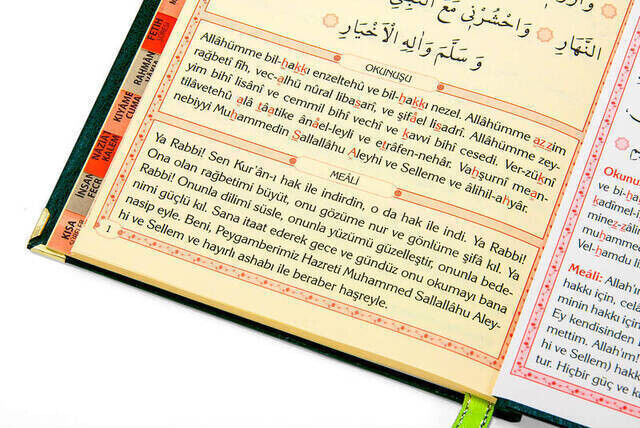 النَّهَارِ وَاحْشُرْنِي مَعَ النَّبِيِّ
وَ سَلَّمَ وَاٰلِهِ الْاَخْيَارِ
OKUNUŞU
Allâhümme bil-hakkı enzeltehû ve bil-hakkı nezel. Allâhümme azzim
rağbetî fîh, vec-alhü nûral libasarî, ve şifâel lisadrî. Allâhümme zey-
yim bihî lisânî ve cemmil bihî vechî ve kavvi bihî cesedî. Ver-züknî
tilâvetehû alâ tâatike ânâel-leyli ve etrâfen-nehâr. Vahşurnî mean-
nebiyyi Muhammedin Sallallâhu Aleyhi ve Selleme ve âlihil-ahyâr.
MEÂLİ
Ya Rabbi! Sen Kur'ân-ı hak ile indirdin, o da hak ile indi. Ya Rabbi!
Ona olan rağbetimi büyüt, onu gözüme nur ve gönlüme şifâ kıl. Ya
Rabbi! Onunla dilimi süsle, onunla yüzümü güzelleştir, onunla bede-
nimi güçlü kıl. Sana itaat ederek gece ve gündüz onu okumayı bana
nasip eyle. Beni, Peygamberimiz Hazreti Muhammed Sallallâhu Aley-
hi ve Sellem ve hayırlı ashabı ile beraber haşreyle.
1
FETİH
RAHMÂN
KIYÂME
CUMA
NÂZİÂT
KALEM
İNSAN
FECR
KISA
Okunu
ve bi-h
kadîmel-
minez-zâli
muhamm
Vel-hamdu l
Meâli: Allah'ı
hakkı için, cel
minin hakkı içi
Ey kendisinden
mettim. Allah'ım!
hi ve Sellem) hakk
tur. Hiçbir güç ve k